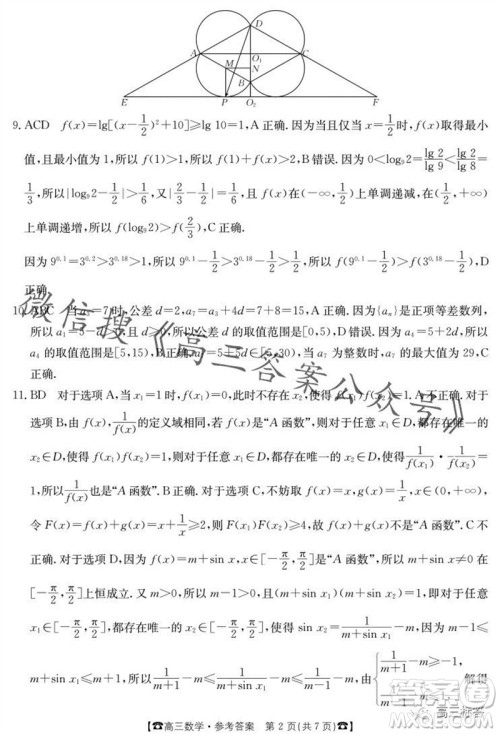 D
A
O₁
C
M
N
B
E
P
O₂
F
9. ACD　f(x)=lg[(x-1/2)²+10]≥lg 10=1,A正确.因为当且仅当x=1/2时,f(x)取得最小
值,且最小值为1,所以f(1)>1,所以f(1)+f(x)>2,B错误.因为0<log₉2=lg 2/lg 9<lg 2/lg 8=
1/3,所以|log₉2-1/2|>1/6,又|2/3-1/2|=1/6,且f(x)在(-∞,1/2)上单调递减,在(1/2,+∞)
上单调递增,所以f(log₉2)>f(2/3),C正确.
因为9^0.1=3^0.2>3^0.18>1,所以9^0.1-1/2>3^0.18-1/2>1/2,所以f(9^0.1-1/2)>f(3^0.18-1/2),D
正确.
10. 当a₁=7时,公差d=2,a₇=a₃+4d=7+8=15,A正确.因为{aₙ}是正项等差数列,
所以a₁=5-d>0,且d≥0,所以公差d的取值范围是[0,5),B错误.因为a₄=5+2d,所以
a₄的取值范围是[5,15),B正确.a₇=5+5d∈[5,30),当a₇为整数时,a₇的最大值为29,C
正确.
11. BD　对于选项A,当x₁=1时,f(x₁)=0,此时不存在x₂,使得f(x₁)f(x₂)=1.A不正确.对于
选项B,由f(x),1/f(x)的定义域相同,若f(x)是“A函数”,则对于任意x₁∈D,都存在唯一的
x₂∈D,使得f(x₁)f(x₂)=1,则对于任意x₁∈D,都存在唯一的x₂∈D,使得1/f(x₁)·1/f(x₂)=
1,所以1/f(x)也是“A函数”.B正确.对于选项C,不妨取f(x)=x,g(x)=1/x,x∈(0,+∞),
令F(x)=f(x)+g(x)=x+1/x≥2,则F(x₁)F(x₂)≥4,故f(x)+g(x)不是“A函数”.C不
正确.对于选项D,因为f(x)=m+sin x,x∈[-π/2,π/2]是“A函数”,所以m+sin x≠0在
[-π/2,π/2]上恒成立.又m>0,所以m-1>0,且(m+sin x₁)(m+sin x₂)=1,即对于任意
x₁∈[-π/2,π/2],都存在唯一的x₂∈[-π/2,π/2],使得sin x₂=1/(m+sin x₁)-m,因为m-1≤
m+sin x₁≤m+1,所以1/(m+1)≤1/(m+sin x₁)≤1/(m-1),由{1/(m+1)-m≥-1, 解得
☎高三数学·参考答案　第2页(共7页)☎
微信搜《高三答案公众号》